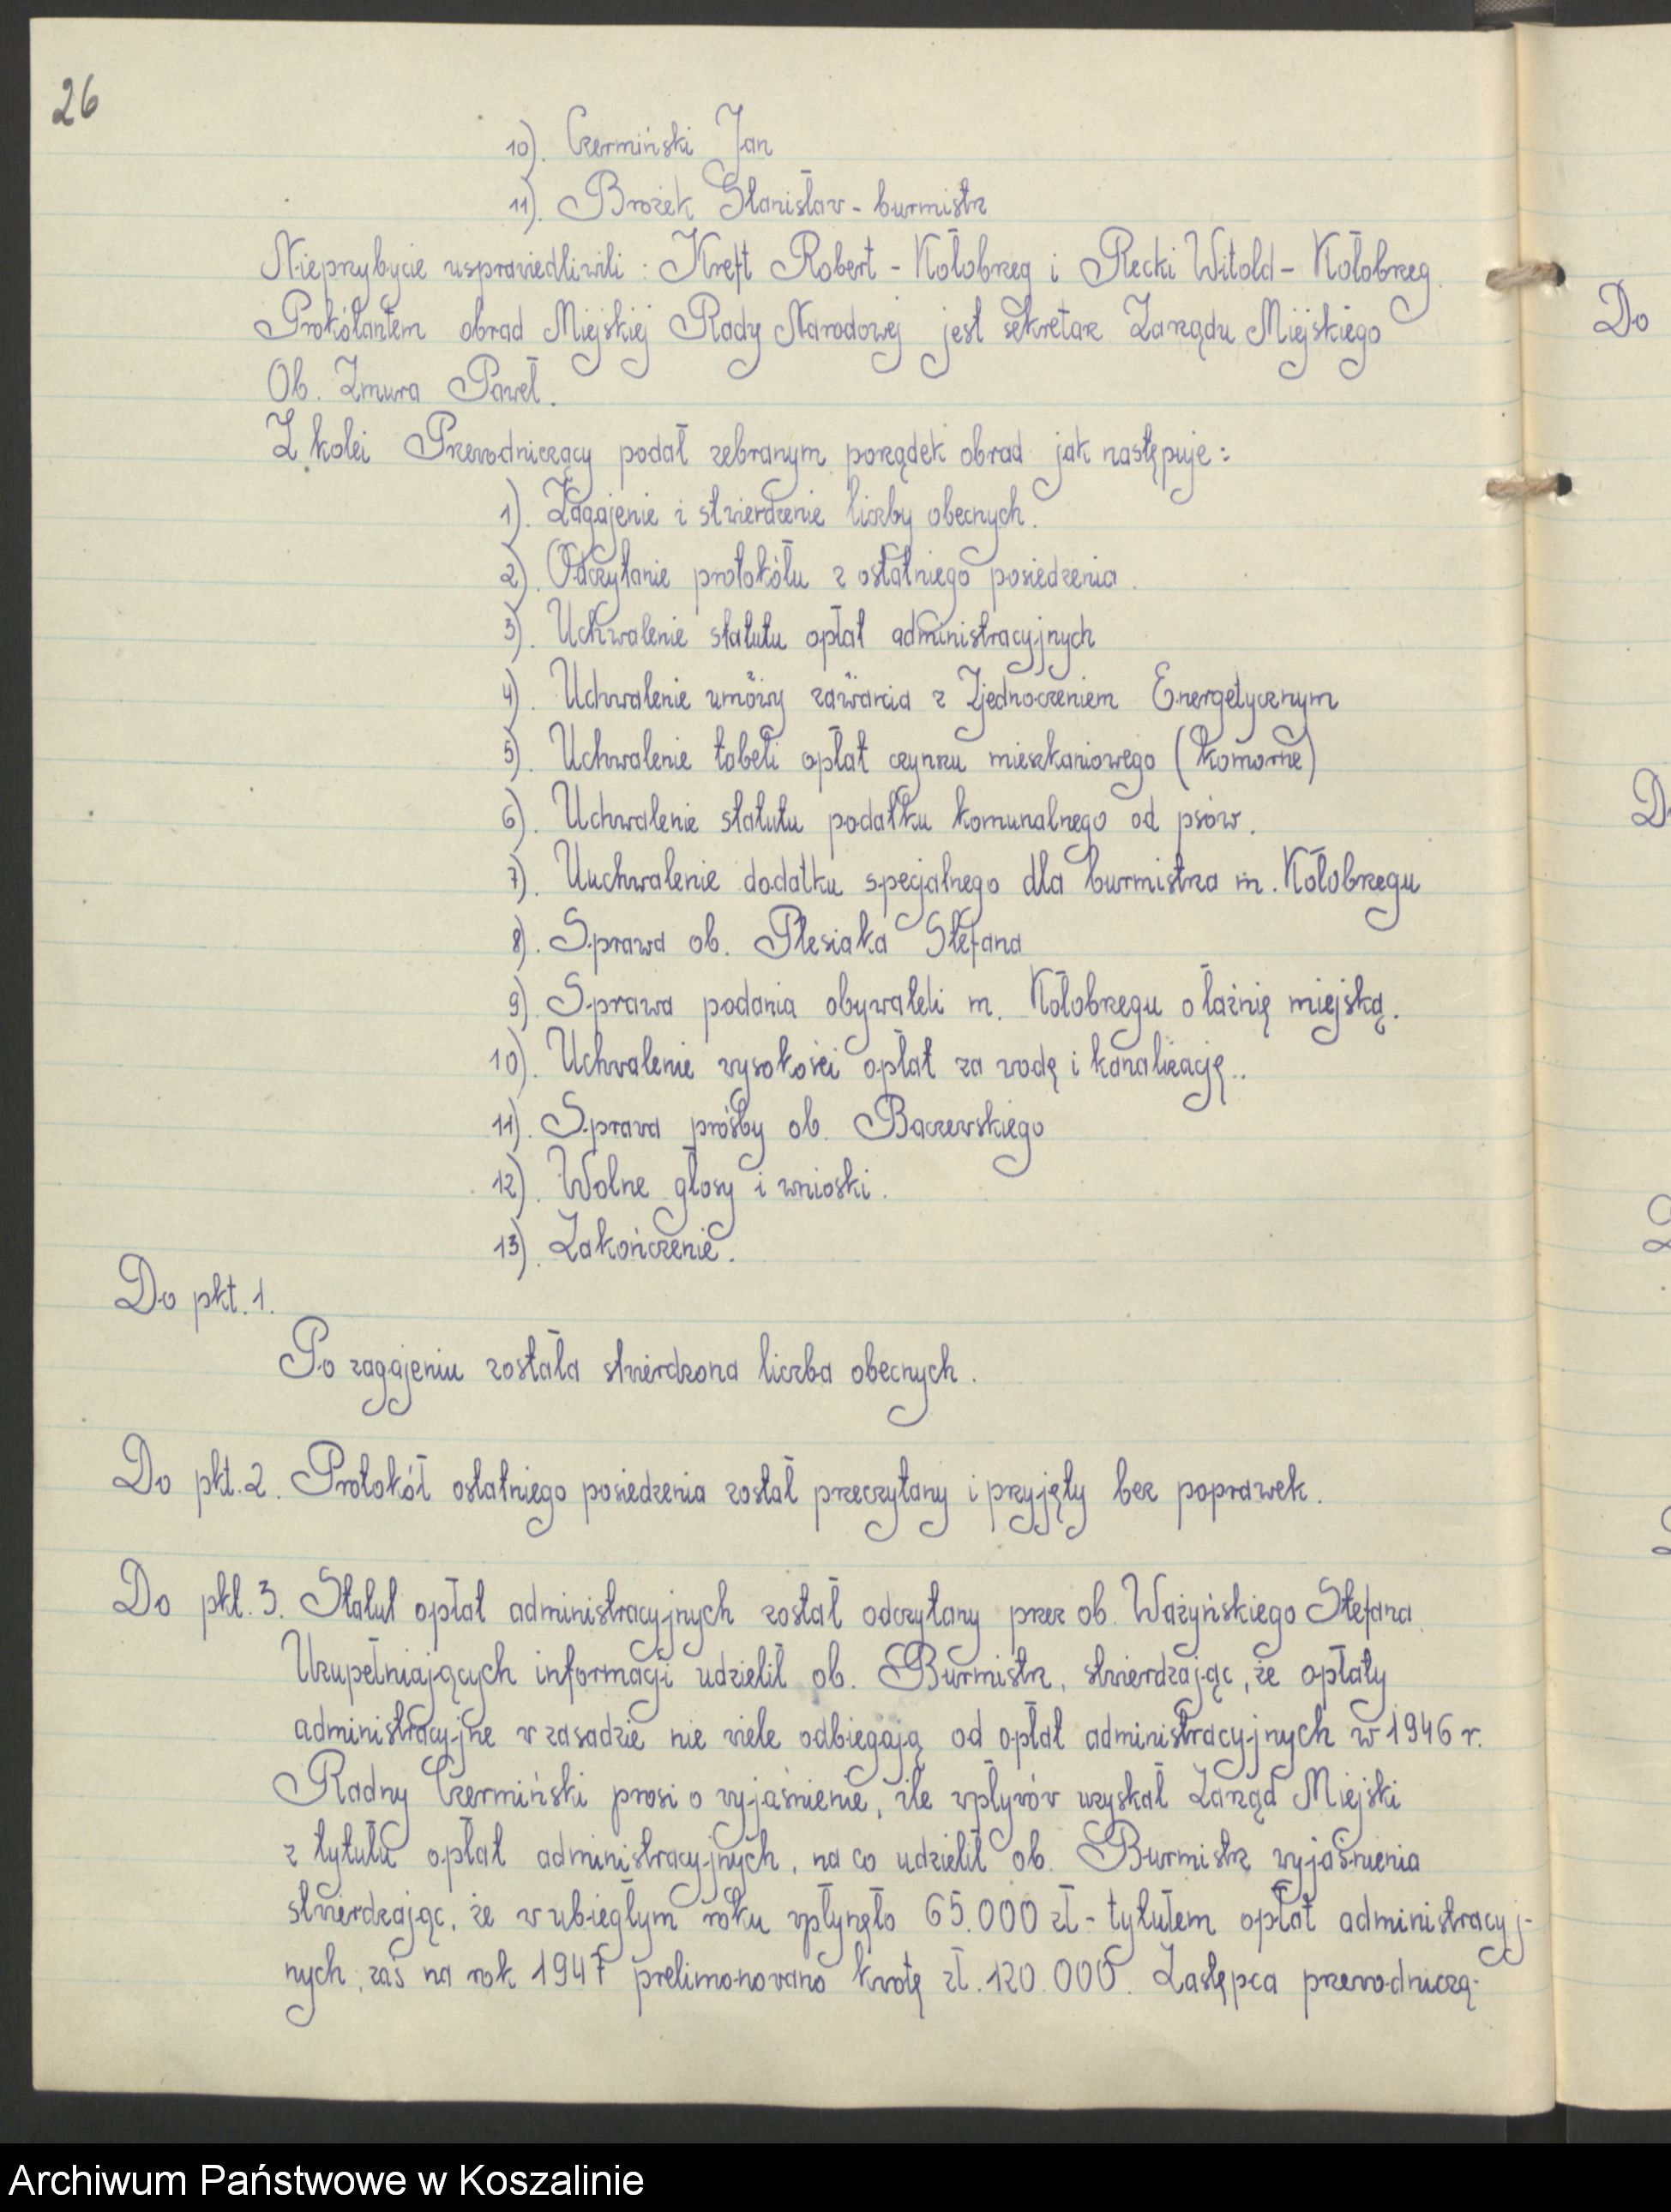 26
10). Czermiński Jan
11). Brożek Stanisław - burmistrz
Nieprzybycie usprawiedliwili : Kreft Robert - Kołobrzeg i Recki Witold - Kołobrzeg.
Prokólantem obrad Miejskiej Rady Narodowej jest sekretarz Zarządu Miejskiego
Ob. Zmura Paweł.
Z kolei Przewodniczący podał zebranym porządek obrad jak następuje :
1). Zagajenie i stwierdzenie liczby obecnych.
2). Odczytanie protokółu z ostatniego posiedzenia.
3). Uchwalenie statutu opłat administracyjnych
4). Uchwalenie umówy zawarcia z Zjednoczeniem Energetycznym
5). Uchwalenie tabeli opłat czynszu mieszkaniowego (komorne)
6). Uchwalenie statutu podatku komunalnego od psów.
7). Uuchwalenie dodatku specjalnego dla burmistrza m. Kołobrzegu
8). Sprawa ob. Plesiaka Stefana
9). Sprawa podania obywateli m. Kołobrzegu o łaźnię miejską.
10). Uchwalenie wysokości opłat za wodę i kanalizację..
11). Sprawa prośby ob. Baczewskiego
12). Wolne głosy i wnioski.
13). Zakończenie.
Do pkt. 1.
Po zagajeniu została stwierdzona liczba obecnych.
Do pkt. 2. Protokół ostatniego posiedzenia został przeczytany i przyjęty bez poprawek.
Do pkt. 3. Statut opłat administracyjnych został odczytany przez ob. Ważyńskiego Stefana.
Uzupełniających informacji udzielił ob. Burmistrz, stwierdzając, że opłaty
administracyjne w zasadzie nie wiele odbiegają od opłat administracyjnych w 1946 r.
Radny Czermiński prosi o wyjaśnienie, ile wpływów uzyskał Zarząd Miejski
z tytułu opłat administracyjnych, na co udzielił ob. Burmistrz wyjaśnienia
stwierdzając, że w ubiegłym roku wpłynęło 65.000 zł - tytułem opłat administracyj-
nych, zaś na rok 1947 prelimonowano kwotę zł. 120.000. Zastępca przewodniczą-
Do
Archiwum Państwowe w Koszalinie